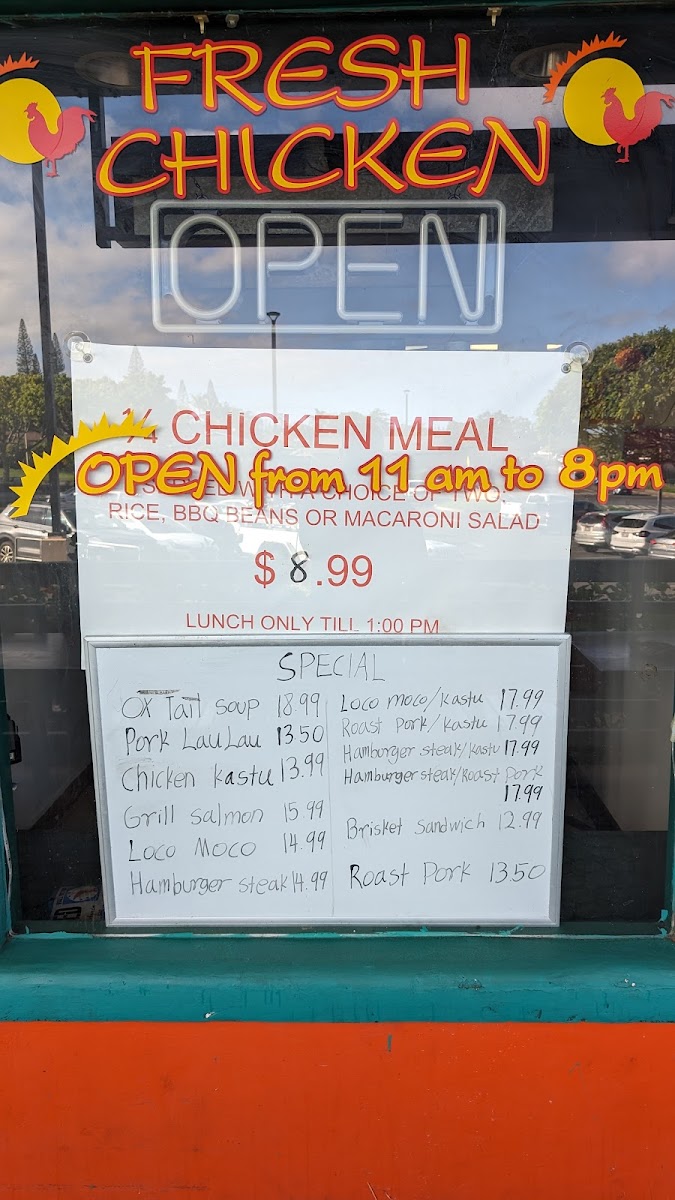 FRESH
CHICKEN
OPEN
1/4 CHICKEN MEAL
OPEN from 11 am to 8pm
SERVED WITH A CHOICE OF TWO:
RICE, BBQ BEANS OR MACARONI SALAD
$8.99
LUNCH ONLY TILL 1:00 PM
SPECIAL
OX Tail soup 18.99
Pork LauLau 13.50
Chicken kastu 13.99
Grill salmon 15.99
Loco Moco 14.99
Hamburger steak 14.99
Loco moco/kastu 17.99
Roast Pork/kastu 17.99
Hamburger steak/kastu 17.99
Hamburger steak/Roast Pork
17.99
Brisket sandwich 12.99
Roast Pork 13.50